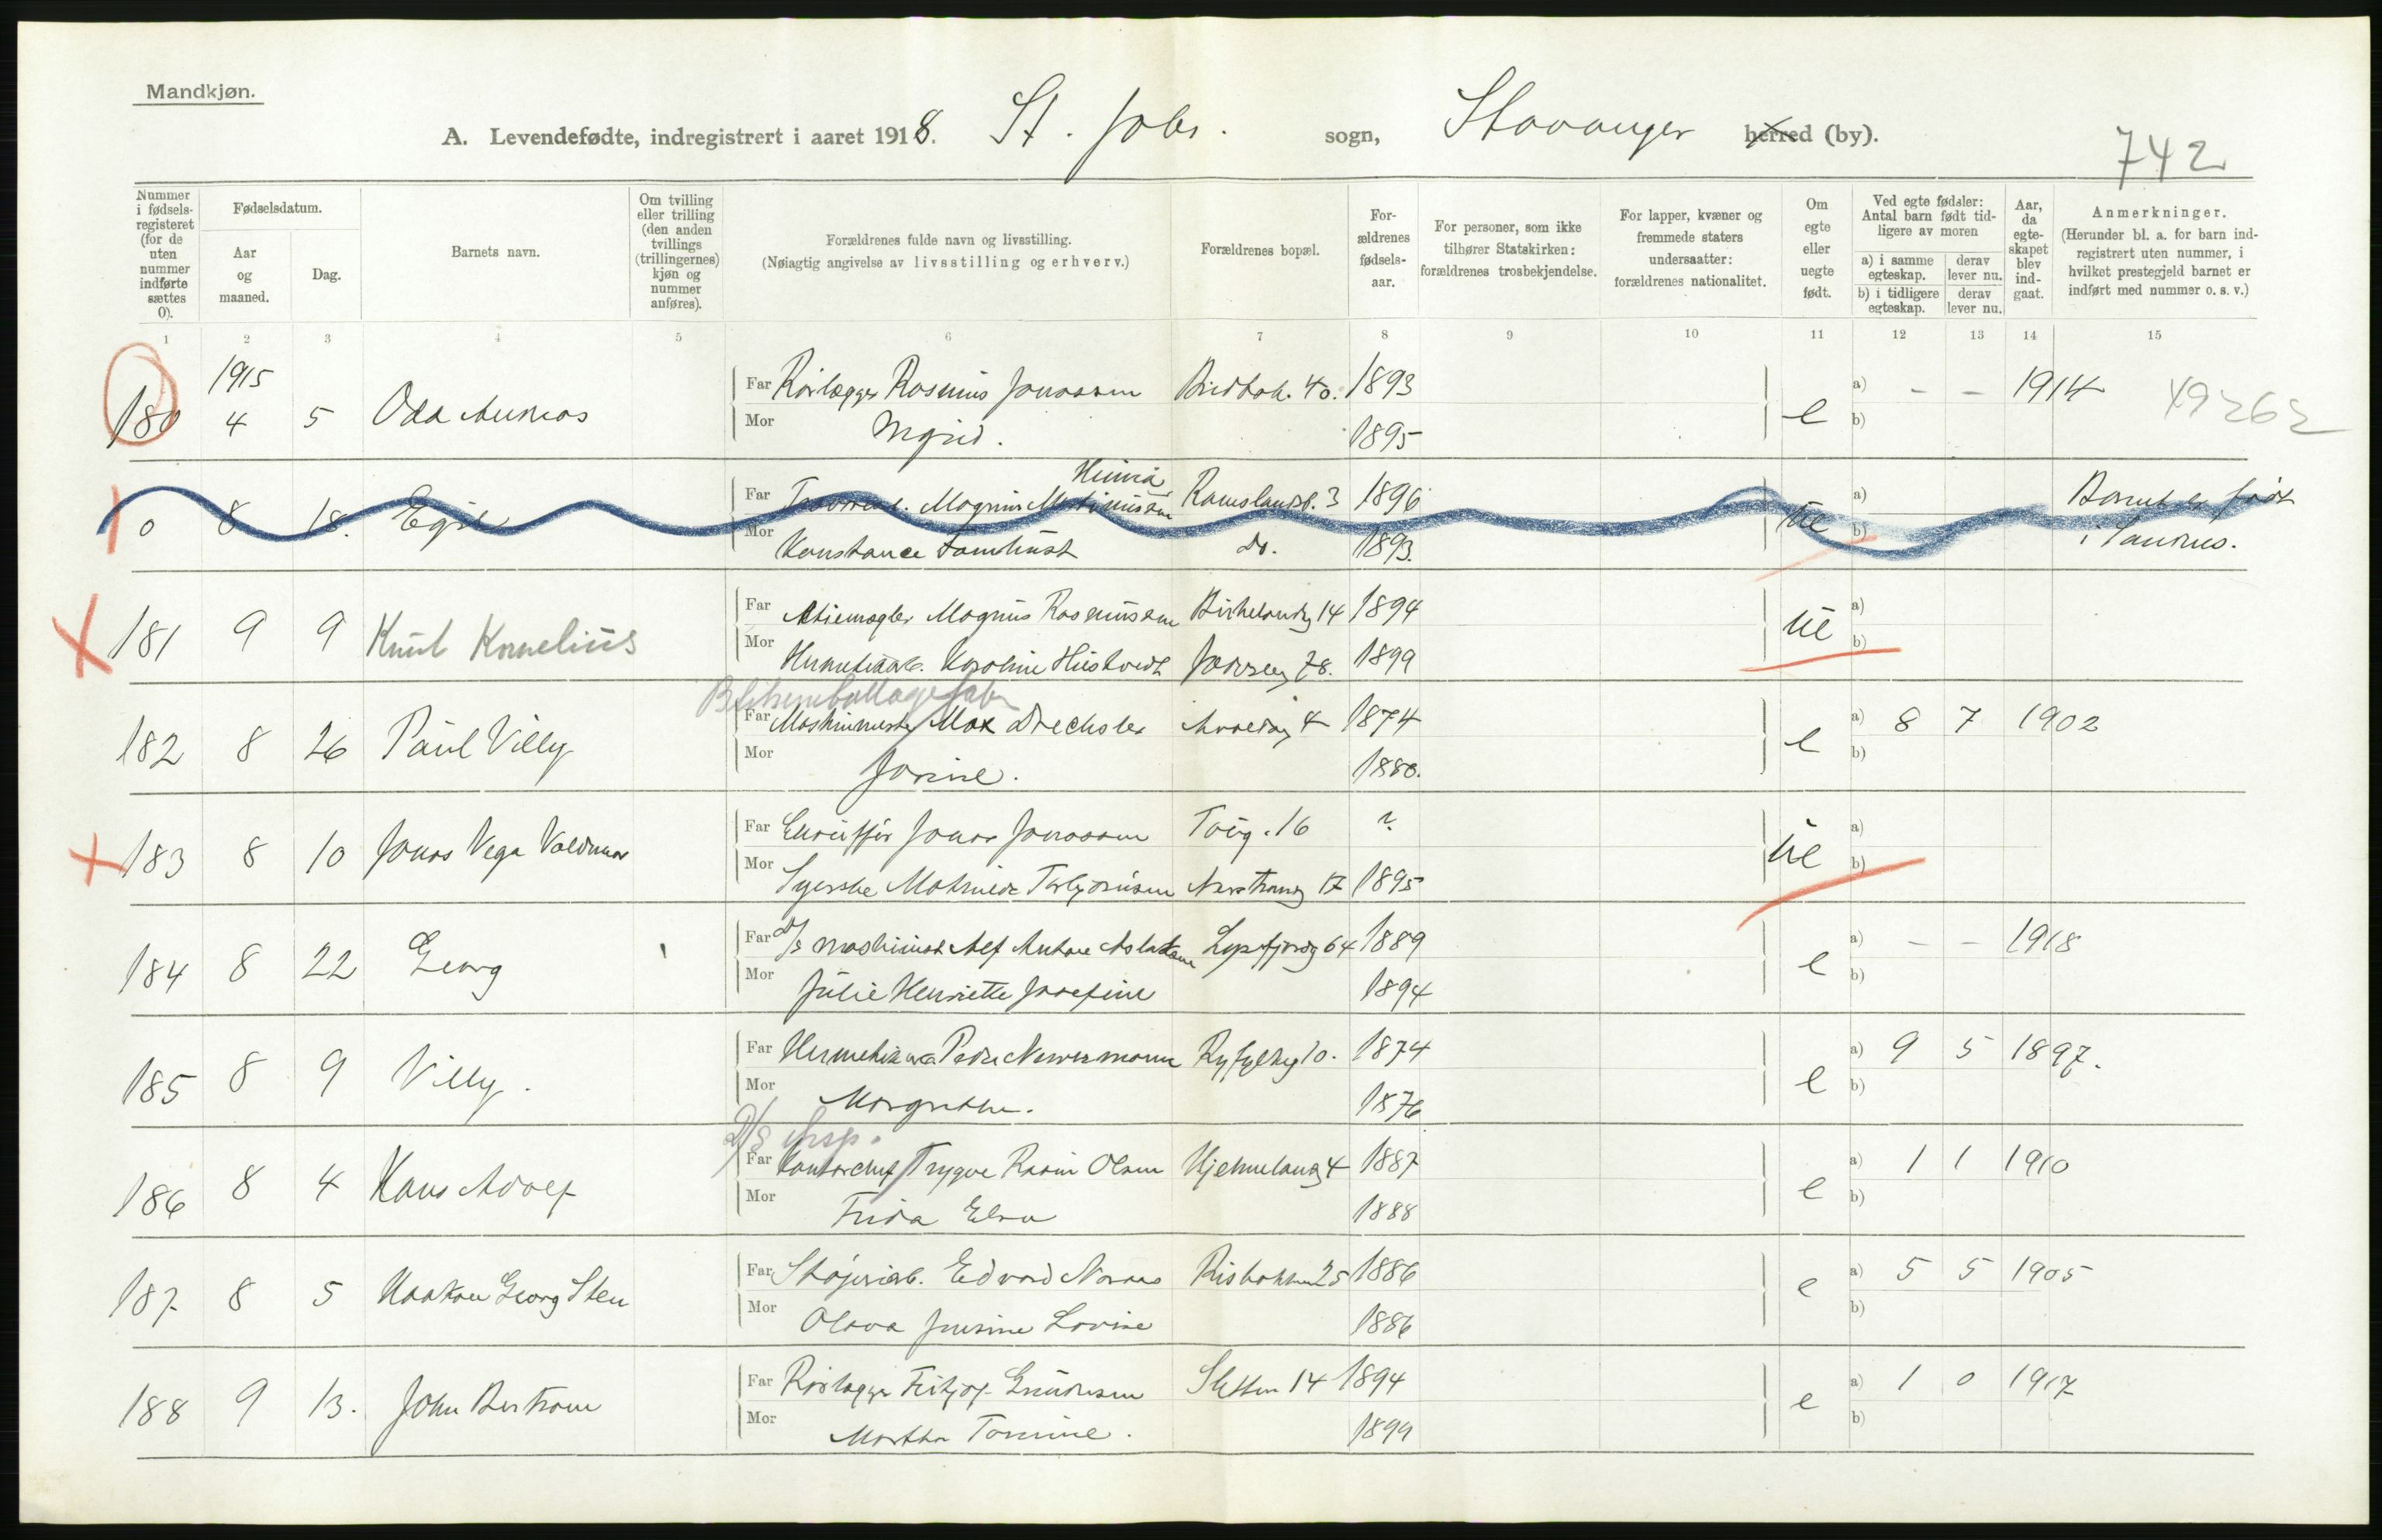 Mandkjøn.
A. Levendefødte, indregistrert i aaret 1918. St. Johs. sogn, Stavanger herred (by).
742
Nummer i fødsels-registeret (for de uten nummer indførte sættes 0).
Fødselsdatum.
Aar og maaned.
Dag.
Barnets navn.
Om tvilling eller trilling (den anden tvillings (trillingernes) kjøn og nummer anføres).
Forældrenes fulde navn og livsstilling.
(Nøiagtig angivelse av livsstilling og erhverv.)
Forældrenes bopæl.
For-ældrenes fødsels-aar.
For personer, som ikke tilhører Statskirken: forældrenes trosbekjendelse.
For lapper, kvæner og fremmede staters undersaatter: forældrenes nationalitet.
Om egte eller uegte født.
Ved egte fødsler: Antal barn født tid-ligere av moren
a) i samme egteskap. derav lever nu.
b) i tidligere egteskap. derav lever nu.
Aar, da egte-skapet blev ind-gaat.
Anmerkninger.
(Herunder bl. a. for barn ind-registrert uten nummer, i hvilket prestegjeld barnet er indført med nummer o. s. v.)
1 2 3 4 5 6 7 8 9 10 11 12 13 14 15
1915
180 4 5 Far Rørlægger Rasmus Jonassen 40. 1893 e a) - - 1914 49262
Mor Ingrid. 1895 b)
0 8 18. Egil Far Magnus 3 1896 ue a) Barnet er født
Mor Konstance do. 1893. b) i Sandnes.
181 9 9 Knut Kornelius Far Magnus Rasmussen 14 1894 ue a)
Mor Karoline 78. 1899 b)
Blikemballagefabr
182 8 26 Paul Villy Far Maskinmester Max Drechsler 4 1874 e a) 8 7 1902
Mor Jorine. 1880. b)
183 8 10 Jonas Vega Valdemar Far Jonas Jonassen 16 ? ue a)
Mor Syerske Mathilde 17 1895 b)
184 8 22 Georg Far D/s maskinist Alf Anton Aslaksen Lysefjordg 64 1889 e a) - - 1918
Mor Julie Henriette Josefine 1894 b)
185 8 9 Villy. Far Peder Ryfylkeg 10. 1874 e a) 9 5 1897.
Mor Margrethe. 1876 b)
D/S Insp.
186 8 4 Hans Adolf Far Kontorchef Trygve Olsen Hjelmelandg 4 1887 e a) 1 1 1910
Mor Frida Elsa 1888 b)
187 8 5 Haakon Georg Sten Far Støperiarb. Edvard 25 1886 e a) 5 5 1905
Mor Olava Lovise 1886 b)
188 9 13. John Far Rørlægger Fritjof Gundersen 14 1894 e a) 1 0 1917
Mor Martha Tomine. 1899 b)